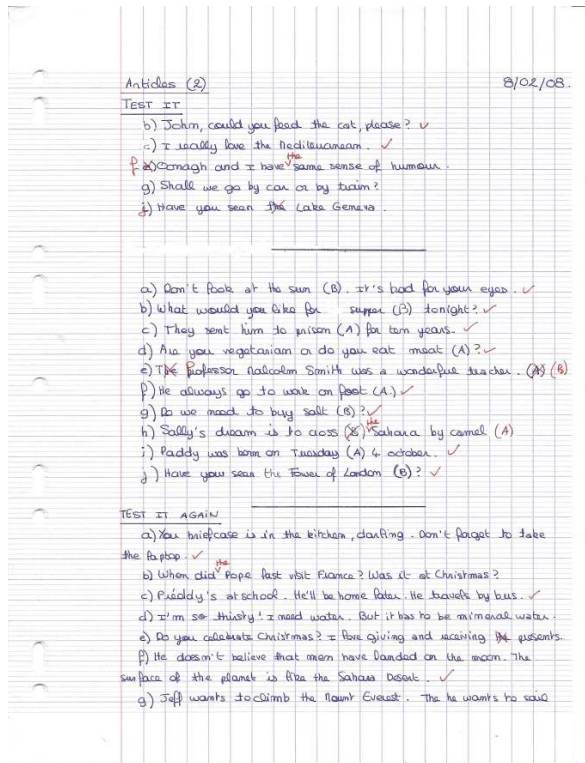 Articles (2) 8/02/08.
TEST IT
b) John, could you feed the cat, please? ✓
c) I really love the Mediterranean. ✓
f) Oonagh and I have the same sense of humour.
g) Shall we go by car or by train?
j) Have you seen the Lake Geneva.
a) Don't look at the sun (B). It's bad for your eyes. ✓
b) What would you like for supper (B) tonight? ✓
c) They sent him to prison (A) for ten years. ✓
d) Are you vegetarian or do you eat meat (A)? ✓
e) The Professor Malcolm Smith was a wonderful teacher. (A) (B)
f) He always go to work on foot (A.) ✓
g) Do we need to buy salt (B)? ✓
h) Sally's dream is to cross (B) the Sahara by camel (A)
i) Paddy was born on Tuesday (A) 4 october. ✓
j) Have you seen the Tower of London (B)? ✓
TEST IT AGAIN
a) You briefcase is in the kitchen, darling. Don't forget to take
the laptop. ✓
b) When did the Pope last visit France? Was it at Christmas?
c) Freddy's at school. He'll be home later. He travels by bus. ✓
d) I'm so thirsty! I need water. But it has to be mineral water.
e) Do you celebrate Christmas? I love giving and receiving presents.
f) He doesn't believe that men have landed on the moon. The
surface of the planet is like the Sahara Desert. ✓
g) Jeff wants to climb the Mount Everest. The he wants to sail